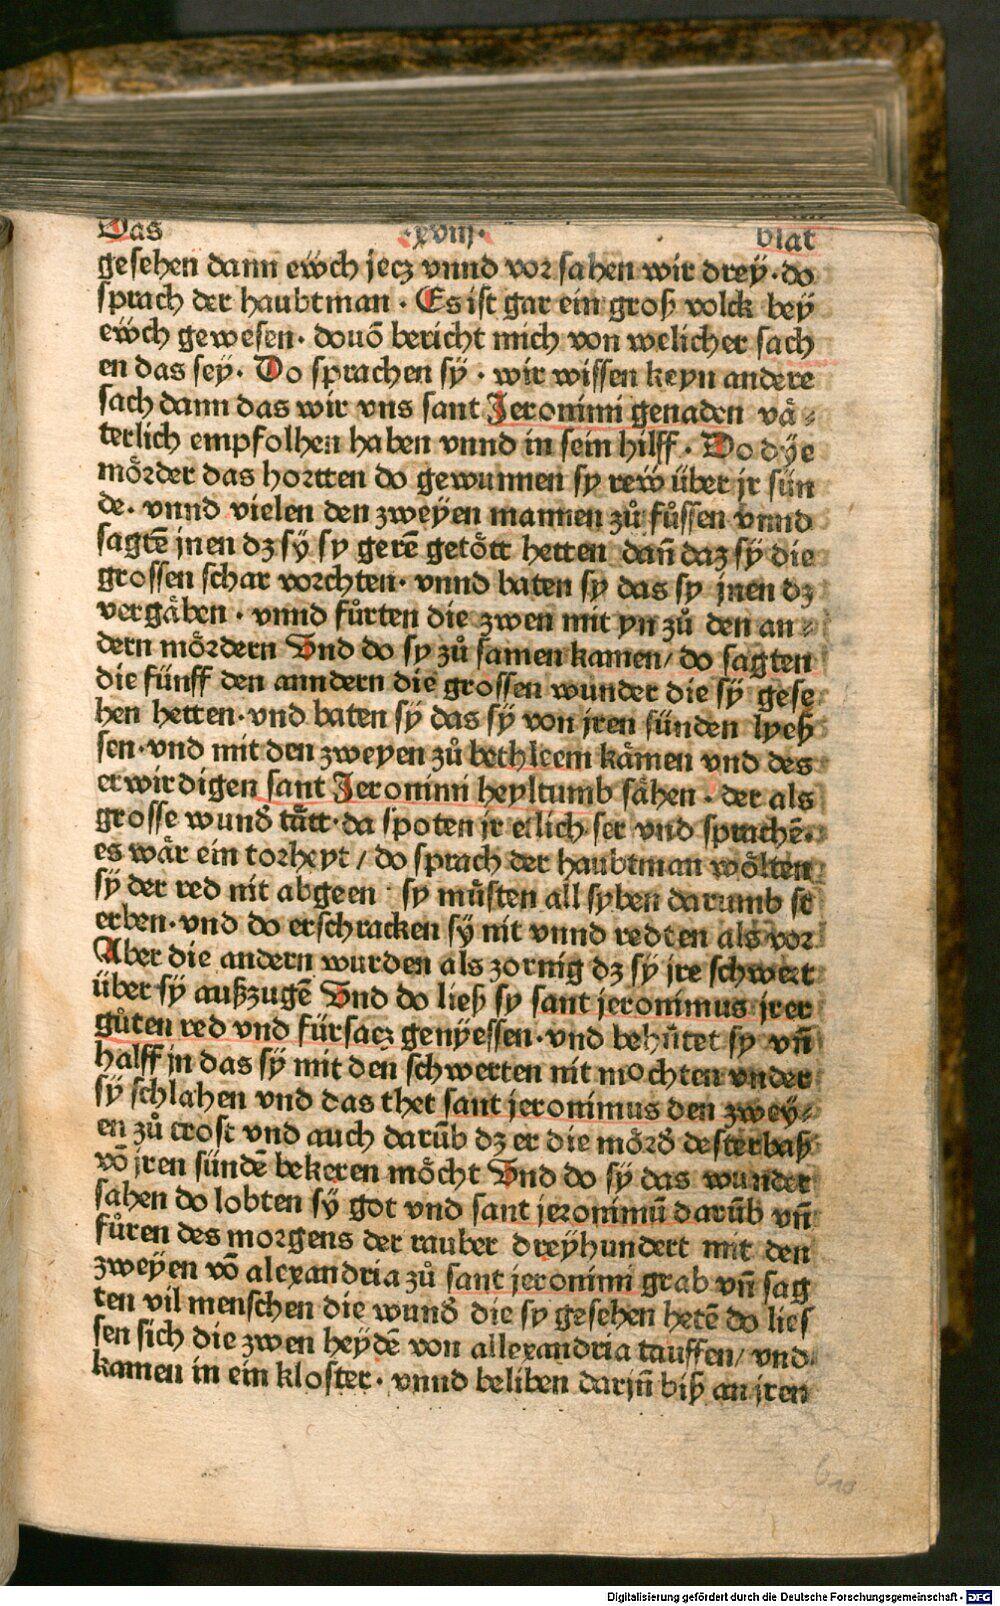 Das ·xviij· blat
gesehen dann ewch jecz vnnd vor sahen wir drey· do
sprach der haubtman · Es ist gar ein groß volck bey
ewch gewesen· douō bericht mich von welicher sach
en das sey· Do sprachen sÿ · wir wissen keyn andere
sach dann das wir vns sant Jeronimi genaden vä⸗
terlich empfolhen haben vnnd in sein hilff · Do dÿe
mörder das hortten do gewunnen sy rew über jr sün
de· vnnd vielen den zweÿen mannen zů fůssen vnnd
sagtē jnen dz sÿ sy gerē getött hetten dañ daz sÿ die
grossen schar vorchten· vnnd baten sy das sy jnen dz
vergäben · vnnd fůrten die zwen mit yn zů den an⸗
dern mördern Vnd do sy zů samen kamen/ do sagten
die fünff den anndern die grossen wunder die sÿ gese
hen hetten· vnd baten sÿ das sÿ von jren sünden lyeß
sen· vnd mit den zweyen zů bethleem kämen vnd des
erwirdigen sant Jeronimi heyltumb sähen · der als
grosse wund̄ tått· da spoten jr etlich ser vnd sprachē·
es wär ein torheyt / do sprach der haubtman wölten
sÿ der red nit abgeen · sy můsten all syben darumb st
erben· vnd do erschracken sÿ nit vnnd redten als vor
Aber die andern wurden als zornig dz sÿ jre schwert
über sÿ außzugē Vnd do ließ sy sant jeronimus jrer
gůten red vnd fürsacz genÿessen· vnd behůtet sy vñ
halff jn das sÿ mit den schwerten nit mochten vnder
sÿ schlahen vnd das thet sant jeronimus den zwey⸗
en zů trost vnd auch darūb dz er die mörd̄ desterbaß
vō jren sündē bekeren möcht Vnd do sÿ das wunder
sahen do lobten sÿ got vnd sant jeronimū darūb vñ
fůren des morgens der rauber dreÿhundert mit den
zweÿen vō alexandria zů sant jeronimi grab vñ sag
ten vil menschen die wund̄ die sy gesehen hetē do lies
sen sich die zwen heydē von allexandria tauffen/ vnd
kamen in ein kloster· vnnd beliben darjñ biß an jren
Digitalisierung gefördert durch die Deutsche Forschungsgemeinschaft - DFG